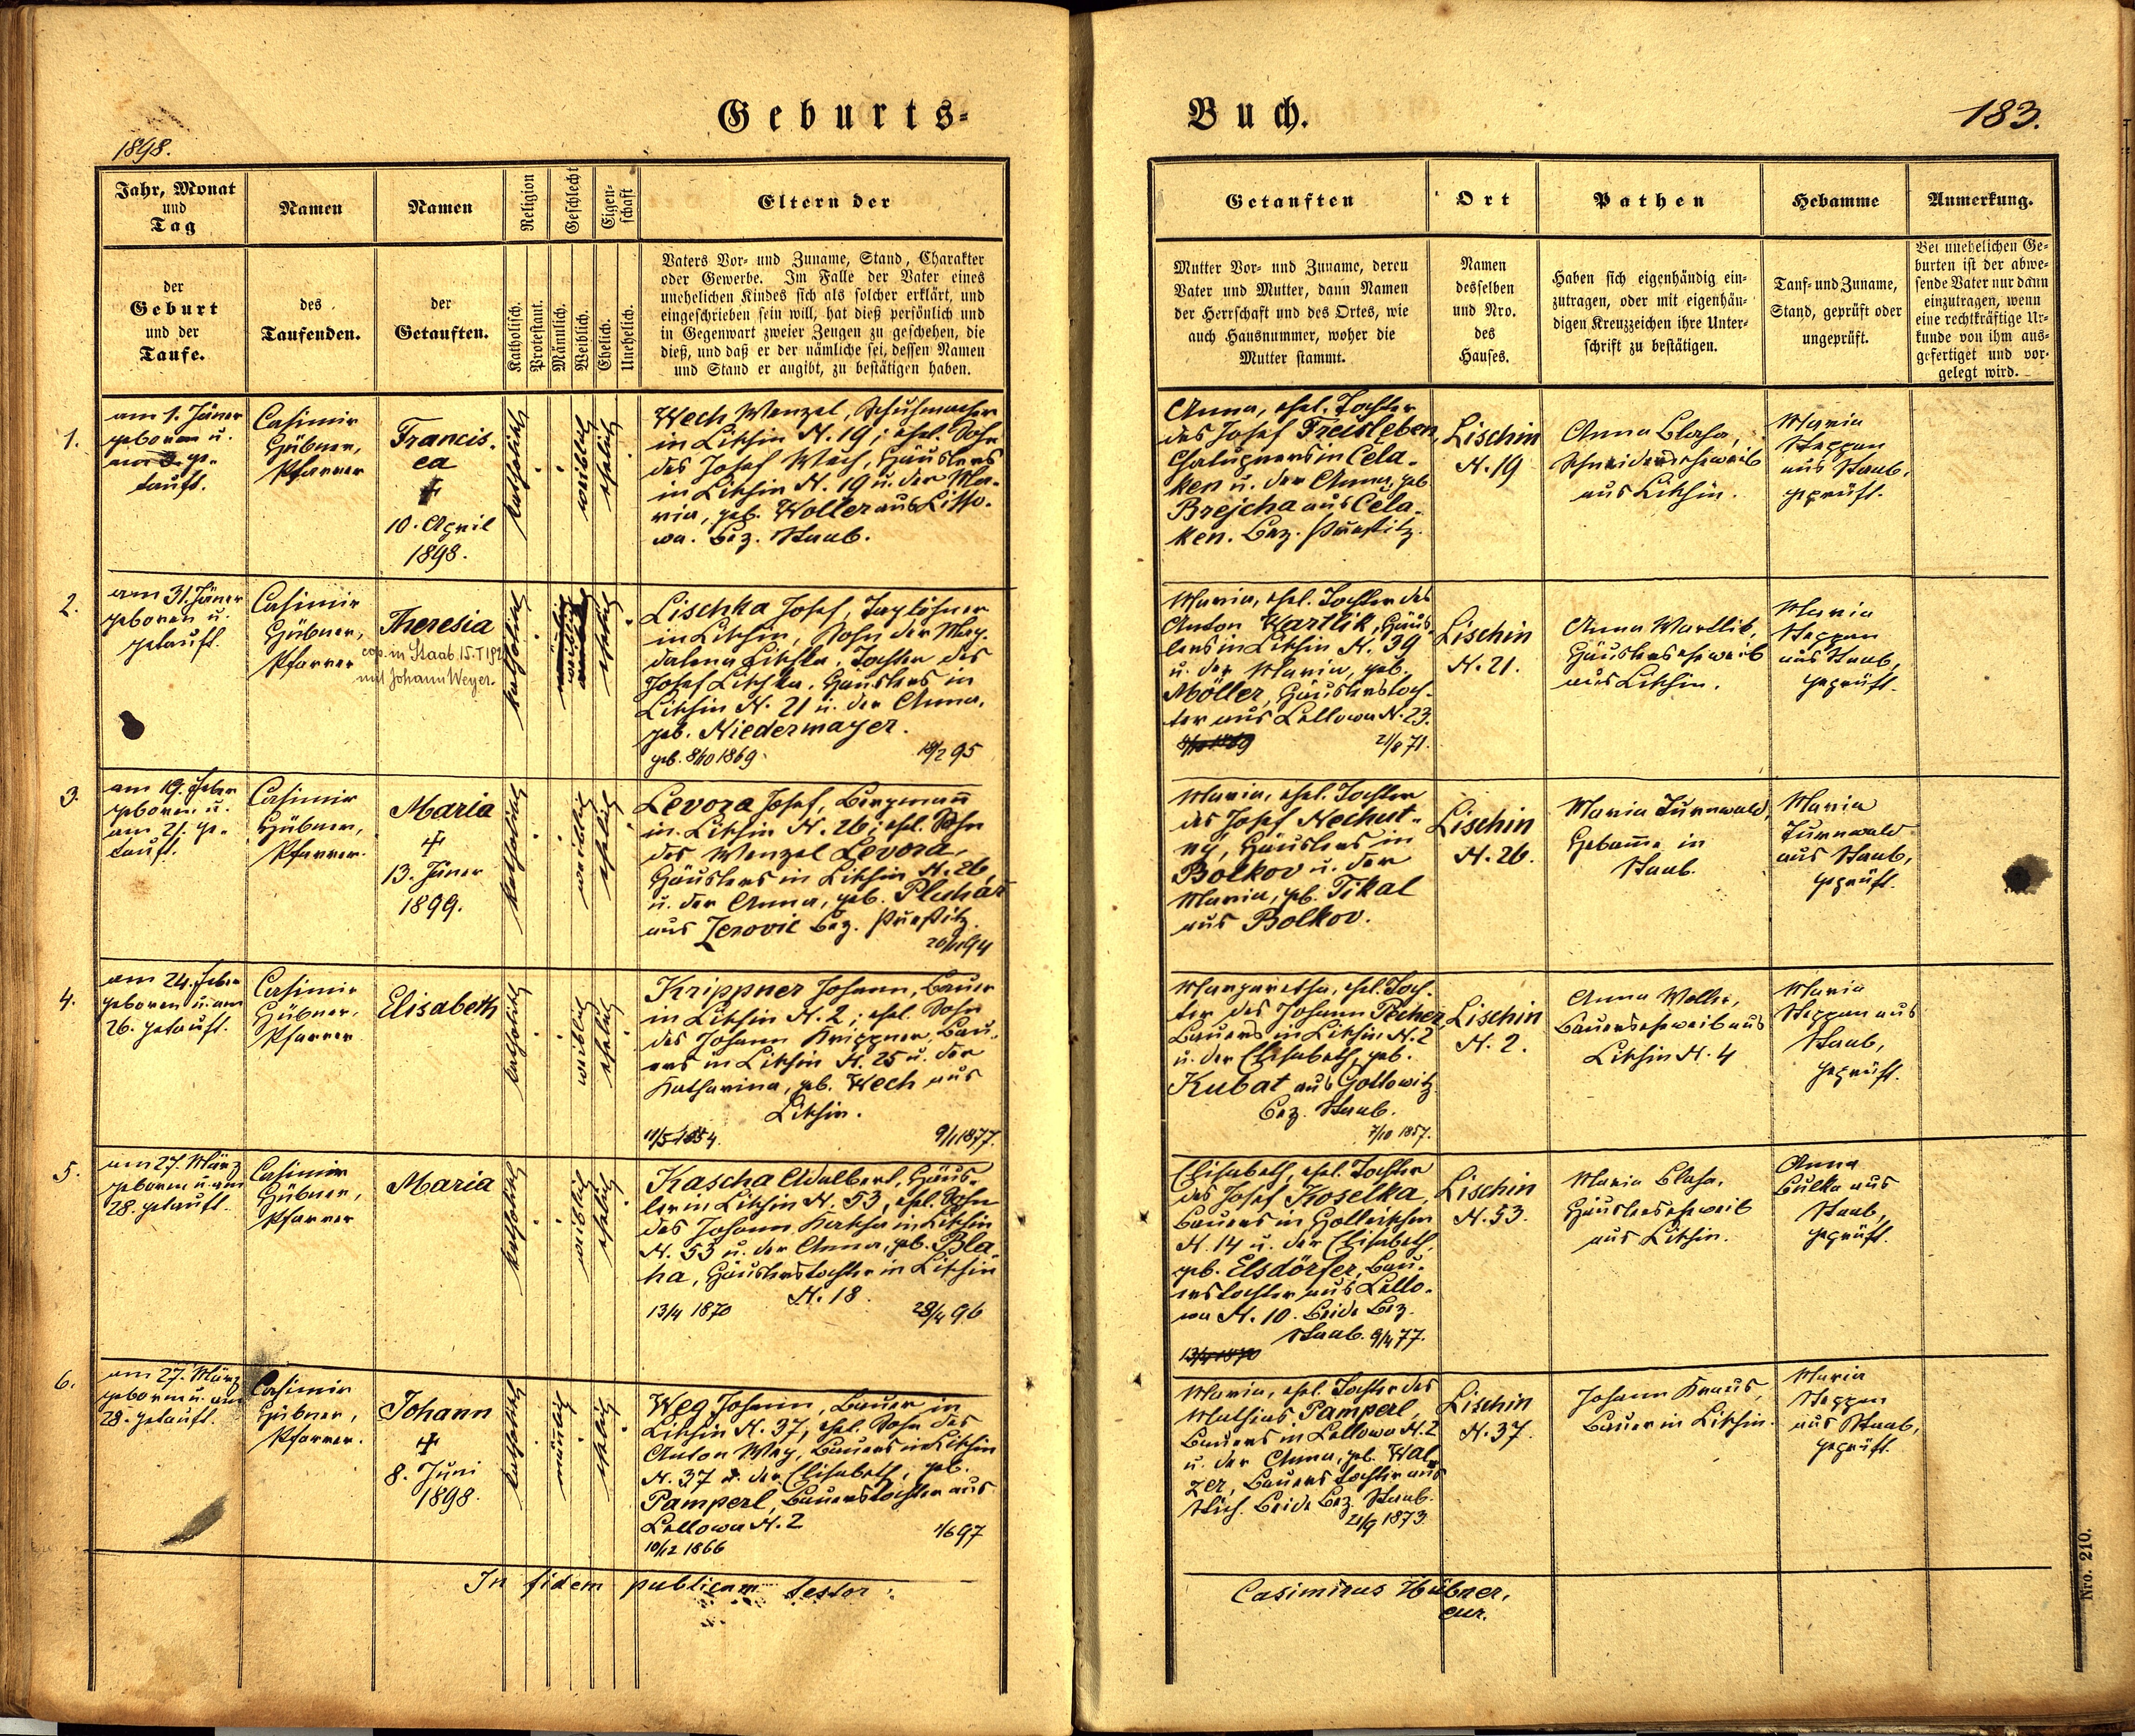 Geburts=
Buch.
183.
1898.
Jahr, Monat
und
Tag
Namen
Namen
Religion
Geschlecht
Eigen-
schaft
Eltern der
der
Geburt
und der
Taufe.
des
Taufenden.
der
Getauften.
Katholisch.
Protestant.
Männlich.
Weiblich.
Ehelich.
Unehelich.
Vaters Vor- und Zuname, Stand, Charakter
oder Gewerbe. Im Falle der Vater eines
unehelichen Kindes sich als solcher erklärt, und
eingeschrieben sein will, hat dieß persönlich und
in Gegenwart zweier Zeugen zu geschehen, die
dieß, und daß er der nämliche sei, dessen Namen
und Stand er angibt, zu bestätigen haben.
1.
am 1. Jäner
geboren u.
am 3. ge-
tauft.
Casimir
Hübner,
Pfarrer
Francis-
ca
10. April
1898.
katholisch
weiblich
ehelich
Wech Wenzel, Schuhmacher
in Lischin N. 19; ehel. Sohn
des Josef Wech, Häuslers
in Lischin N. 19 u. der Ma-
ria, geb. Woller aus Litto-
wa. Bez. Staab.
2.
am 31. Jäner
geboren u.
getauft.
Casimir
Hübner,
Pfarrer
Theresia
cop. in Staab 15. I 192
mit Johann Weyer.
katholisch
weiblich
ehelich
Lischka Josef, Taglöhner
in Lischin, Sohn der Mag-
dalena Lischka, Tochter des
Josef Lischka, Häuslers in
Lischin N. 21 u. der Anna,
geb. Niedermayer.
geb. 8/10 1869.
18/2 95
3.
am 19. Feber
geboren u.
am 21. ge-
tauft.
Casimir
Hübner,
Pfarrer.
Maria
13. Jäner
1899.
katholisch
weiblich
ehelich
Levora Josef, Bergmann
in Lischin N. 26; ehel. Sohn
des Wenzel Levora,
Häuslers in Lischin N. 26
u. der Anna, geb. Pluhár
aus Zerovic Bez. Přestitz.
4.
am 24. Feber
geboren u. am
26. getauft.
Casimir
Hübner,
Pfarrer
Elisabeth
katholisch
weiblich
ehelich
Krippner Johann, Bauer
in Lischin N. 2; ehel. Sohn
des Johann Krippner, Bau-
ers in Lischin N. 25 u. der
Katharina, geb. Wech aus
Lischin.
11/5 1854.
9/1 1877.
5.
am 27. März
geboren u. am
28. getauft.
Casimir
Hübner,
Pfarrer
Maria
katholisch
weiblich
ehelich
Kascha Adalbert, Häus-
ler in Lischin N. 53, ehel. Sohn
des Johann Kascha in Lischin
N. 53 u. der Anna, geb. Bla-
ha, Häuslerstochter in Lischin
N. 18.
13/4 1870
28/4 96
6.
am 27. März
geboren u. am
28. getauft.
Casimir
Hübner,
Pfarrer.
Johann
8. Juni
1898.
katholisch
männlich
ehelich
Weg Johann, Bauer in
Lischin N. 37, ehel. Sohn des
Anton Weg, Bauers in Lischin
N. 37 u. der Elisabeth, geb.
Pamperl, Bauerstochter aus
Lellowa N. 2
10/12 1866
1/6 97
In fidem publicam testor:
Getauften
Ort
Pathen
Hebamme
Anmerkung.
Mutter Vor- und Zuname, deren
Vater und Mutter, dann Namen
der Herrschaft und des Ortes, wie
auch Hausnummer, woher die
Mutter stammt.
Namen
desselben
und Nro.
des
Hauses.
Haben sich eigenhändig ein-
zutragen, oder mit eigenhän-
digen Kreuzzeichen ihre Unter-
schrift zu bestätigen.
Tauf- und Zuname,
Stand, geprüft oder
ungeprüft.
Bei unehelichen Ge-
burten ist der abwe-
sende Vater nur dann
einzutragen, wenn
eine rechtkräftige Ur-
kunde von ihm aus-
gefertiget und vor-
gelegt wird.
Anna, ehel. Tochter
des Josef Freisleben,
Chalupners in Cela-
ken u. der Anna, geb.
Brejcha aus Cela-
ken. Bez. Přestitz.
Lischin
N. 19
Anna Blaha,
Schneidersehe weib
aus Lischin.
Maria
Steppan
aus Staab,
geprüft.
Maria, ehel. Tochter des
Anton Wartlik, Häus-
lers in Lischin N. 39
u. der Maria, geb.
Möller, Häuslerstoch-
ter aus Lellowa N. 23.
8/10 1869
21/8 71.
Lischin
N. 21.
Anna Wartlik,
Häuslersehe weib
aus Lischin.
Maria
Steppan
aus Staab,
geprüft.
Maria, ehel. Tochter
des Josef Nechut-
ny, Häuslers in
Bolkov u. der
Maria, geb. Tikal
aus Bolkov.
Lischin
N. 26.
Maria Turnwald,
Hebamme in
Staab.
Maria
Turnwald
aus Staab,
geprüft.
Margaretha, ehel. Toch-
ter des Johann Pecher
Bauers in Lischin N. 2
u. der Elisabeth, geb.
Kubat aus Gottowitz
Bez. Staab.
7/10 1857.
Lischin
N. 2.
Anna Woller,
Bauersehe weib aus
Lischin N. 4
Maria
Steppan aus
Staab,
geprüft.
Elisabeth, ehel. Tochter
des Josef Koselka,
Bauers in Holleischen
N. 14 u. der Elisabeth,
geb. Elsdörfer, Bau-
erstochter aus Lello-
wa N. 10. Beide Bez.
Staab. 9/4 77.
13/4 1870
Lischin
N. 53.
Maria Blaha,
Häuslersehe weib
aus Lischin.
Anna
Bulka aus
Staab,
geprüft.
Maria, ehel. Tochter des
Mathias Pamperl,
Bauers in Lellowa N. 2
u. der Anna, geb. Wal-
zer, Bauerstochter aus
Stich. Beide Bez. Staab.
21/9 1873.
Lischin
N. 37.
Johann Kraus,
Bauer in Lischin.
Maria
Steppan
aus Staab,
geprüft.
Casimirus Hübner,
cur.
Nro. 210.